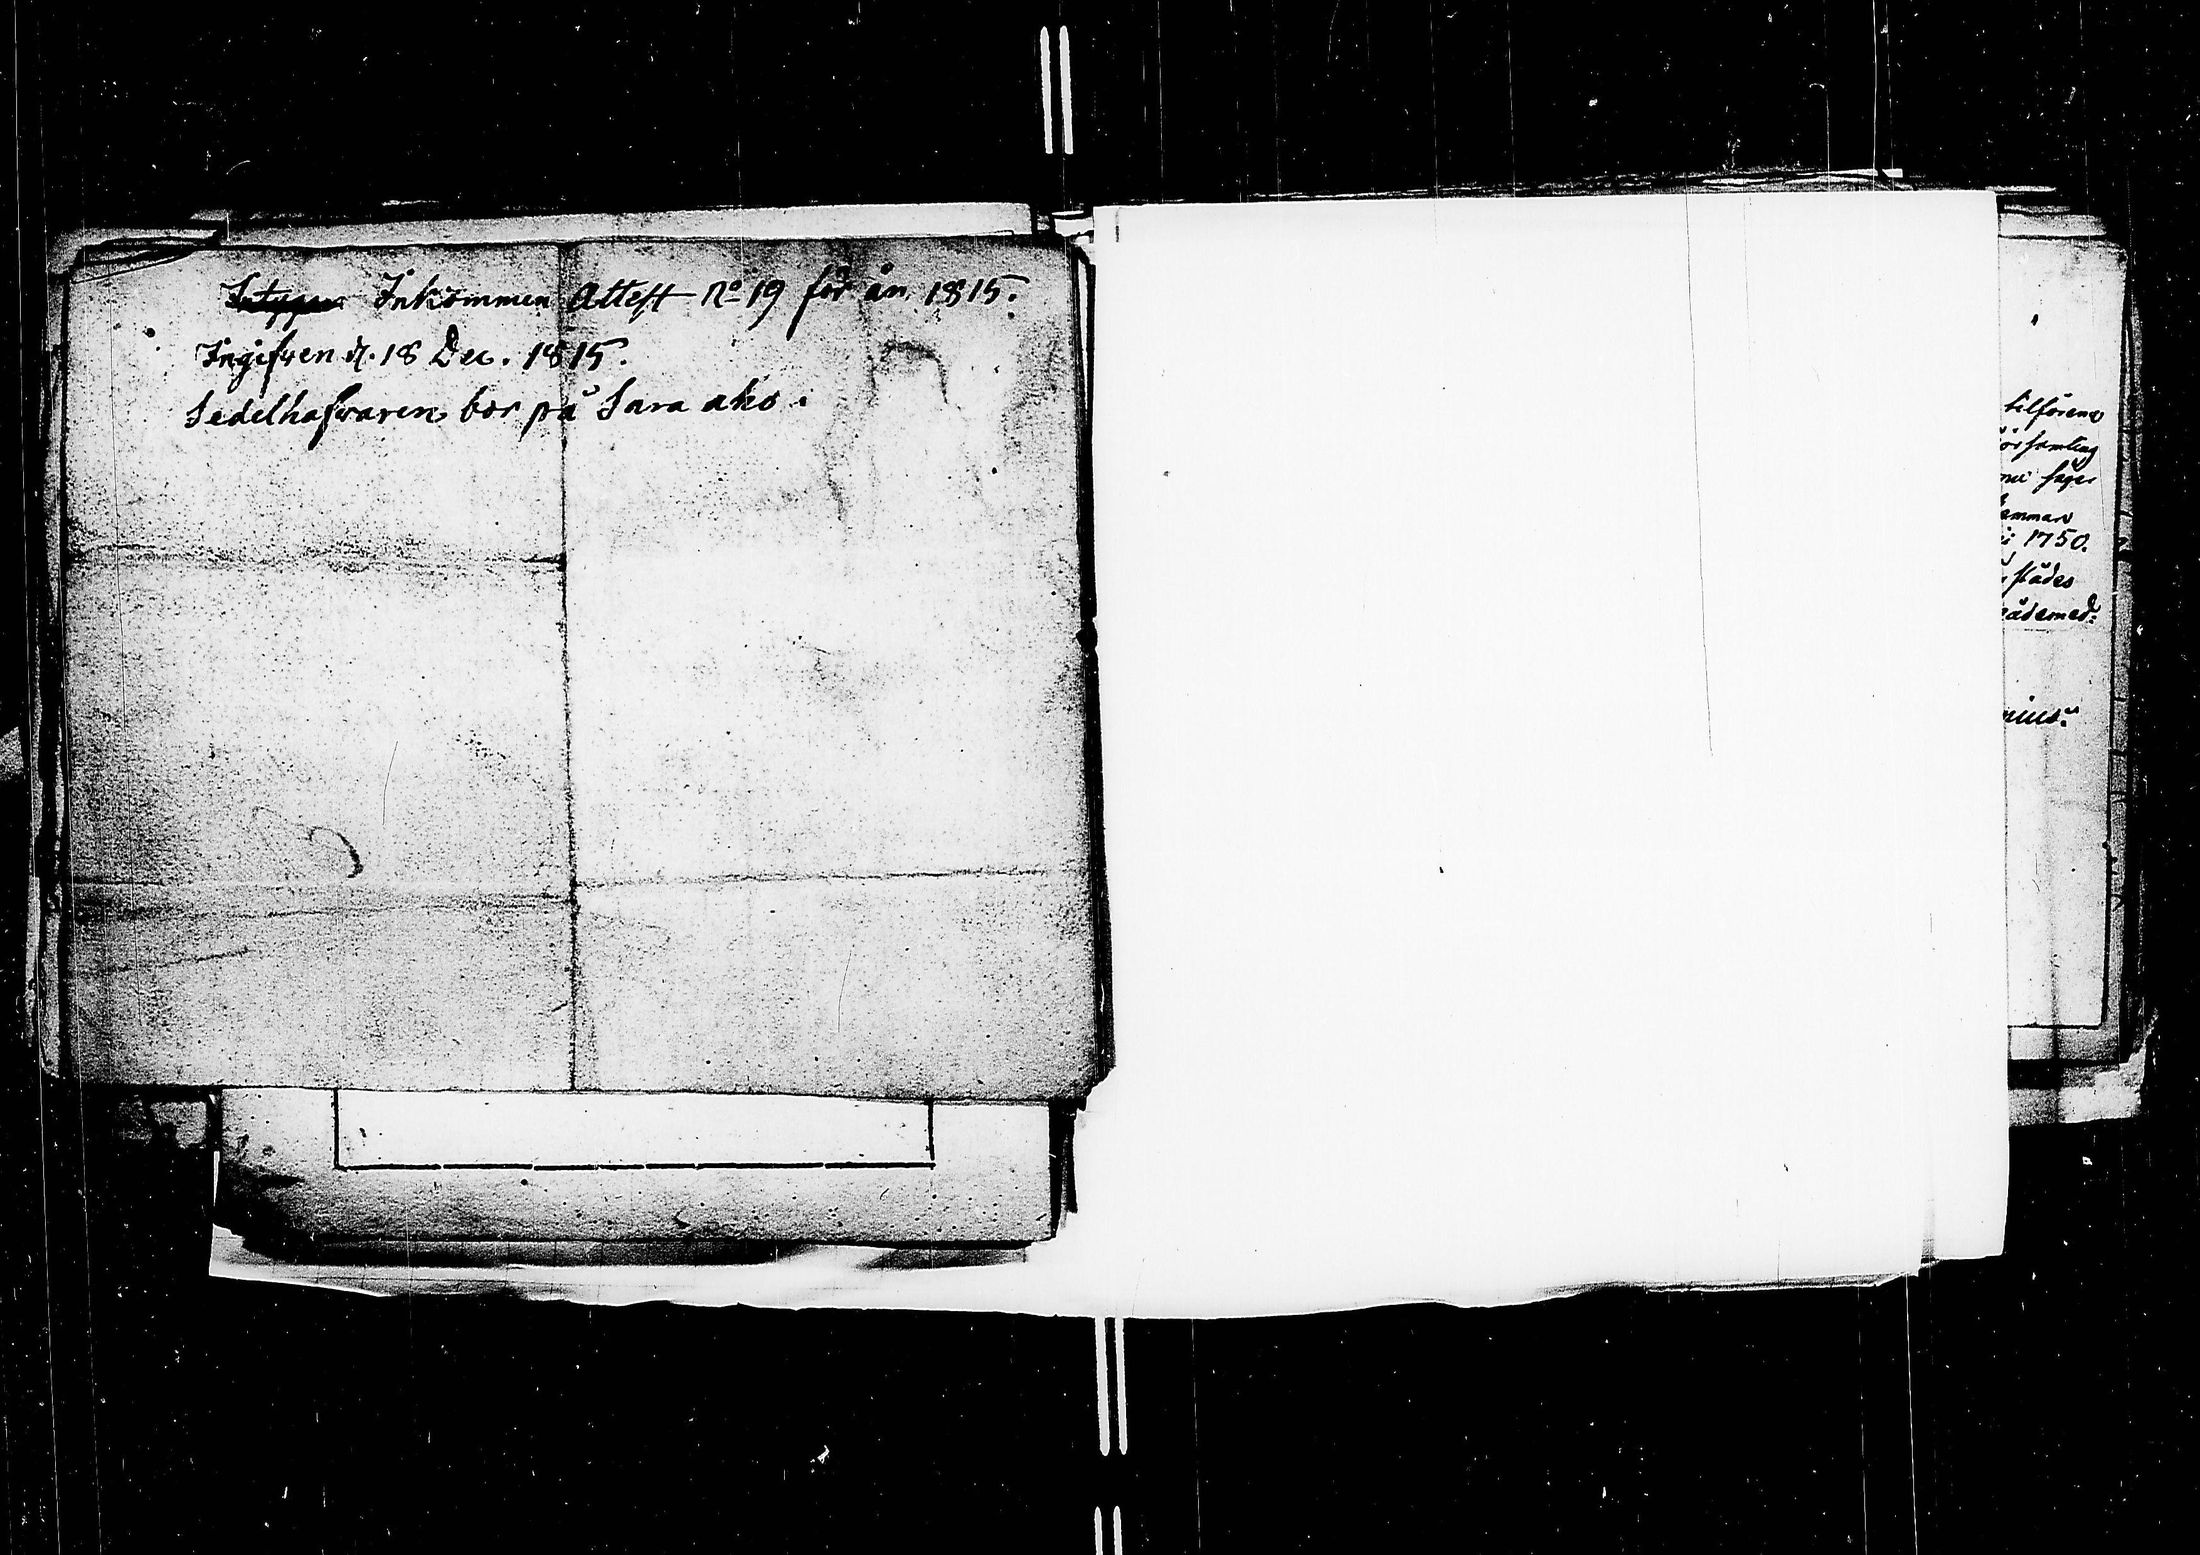 Inkommen Attest No 19 för år 1815.
Ingifven d. 18 Dec. 1815.
Sedelhafvaren bor på Sara aho.
tilförene
örsamling
emman
i 1750.
städes
nius.